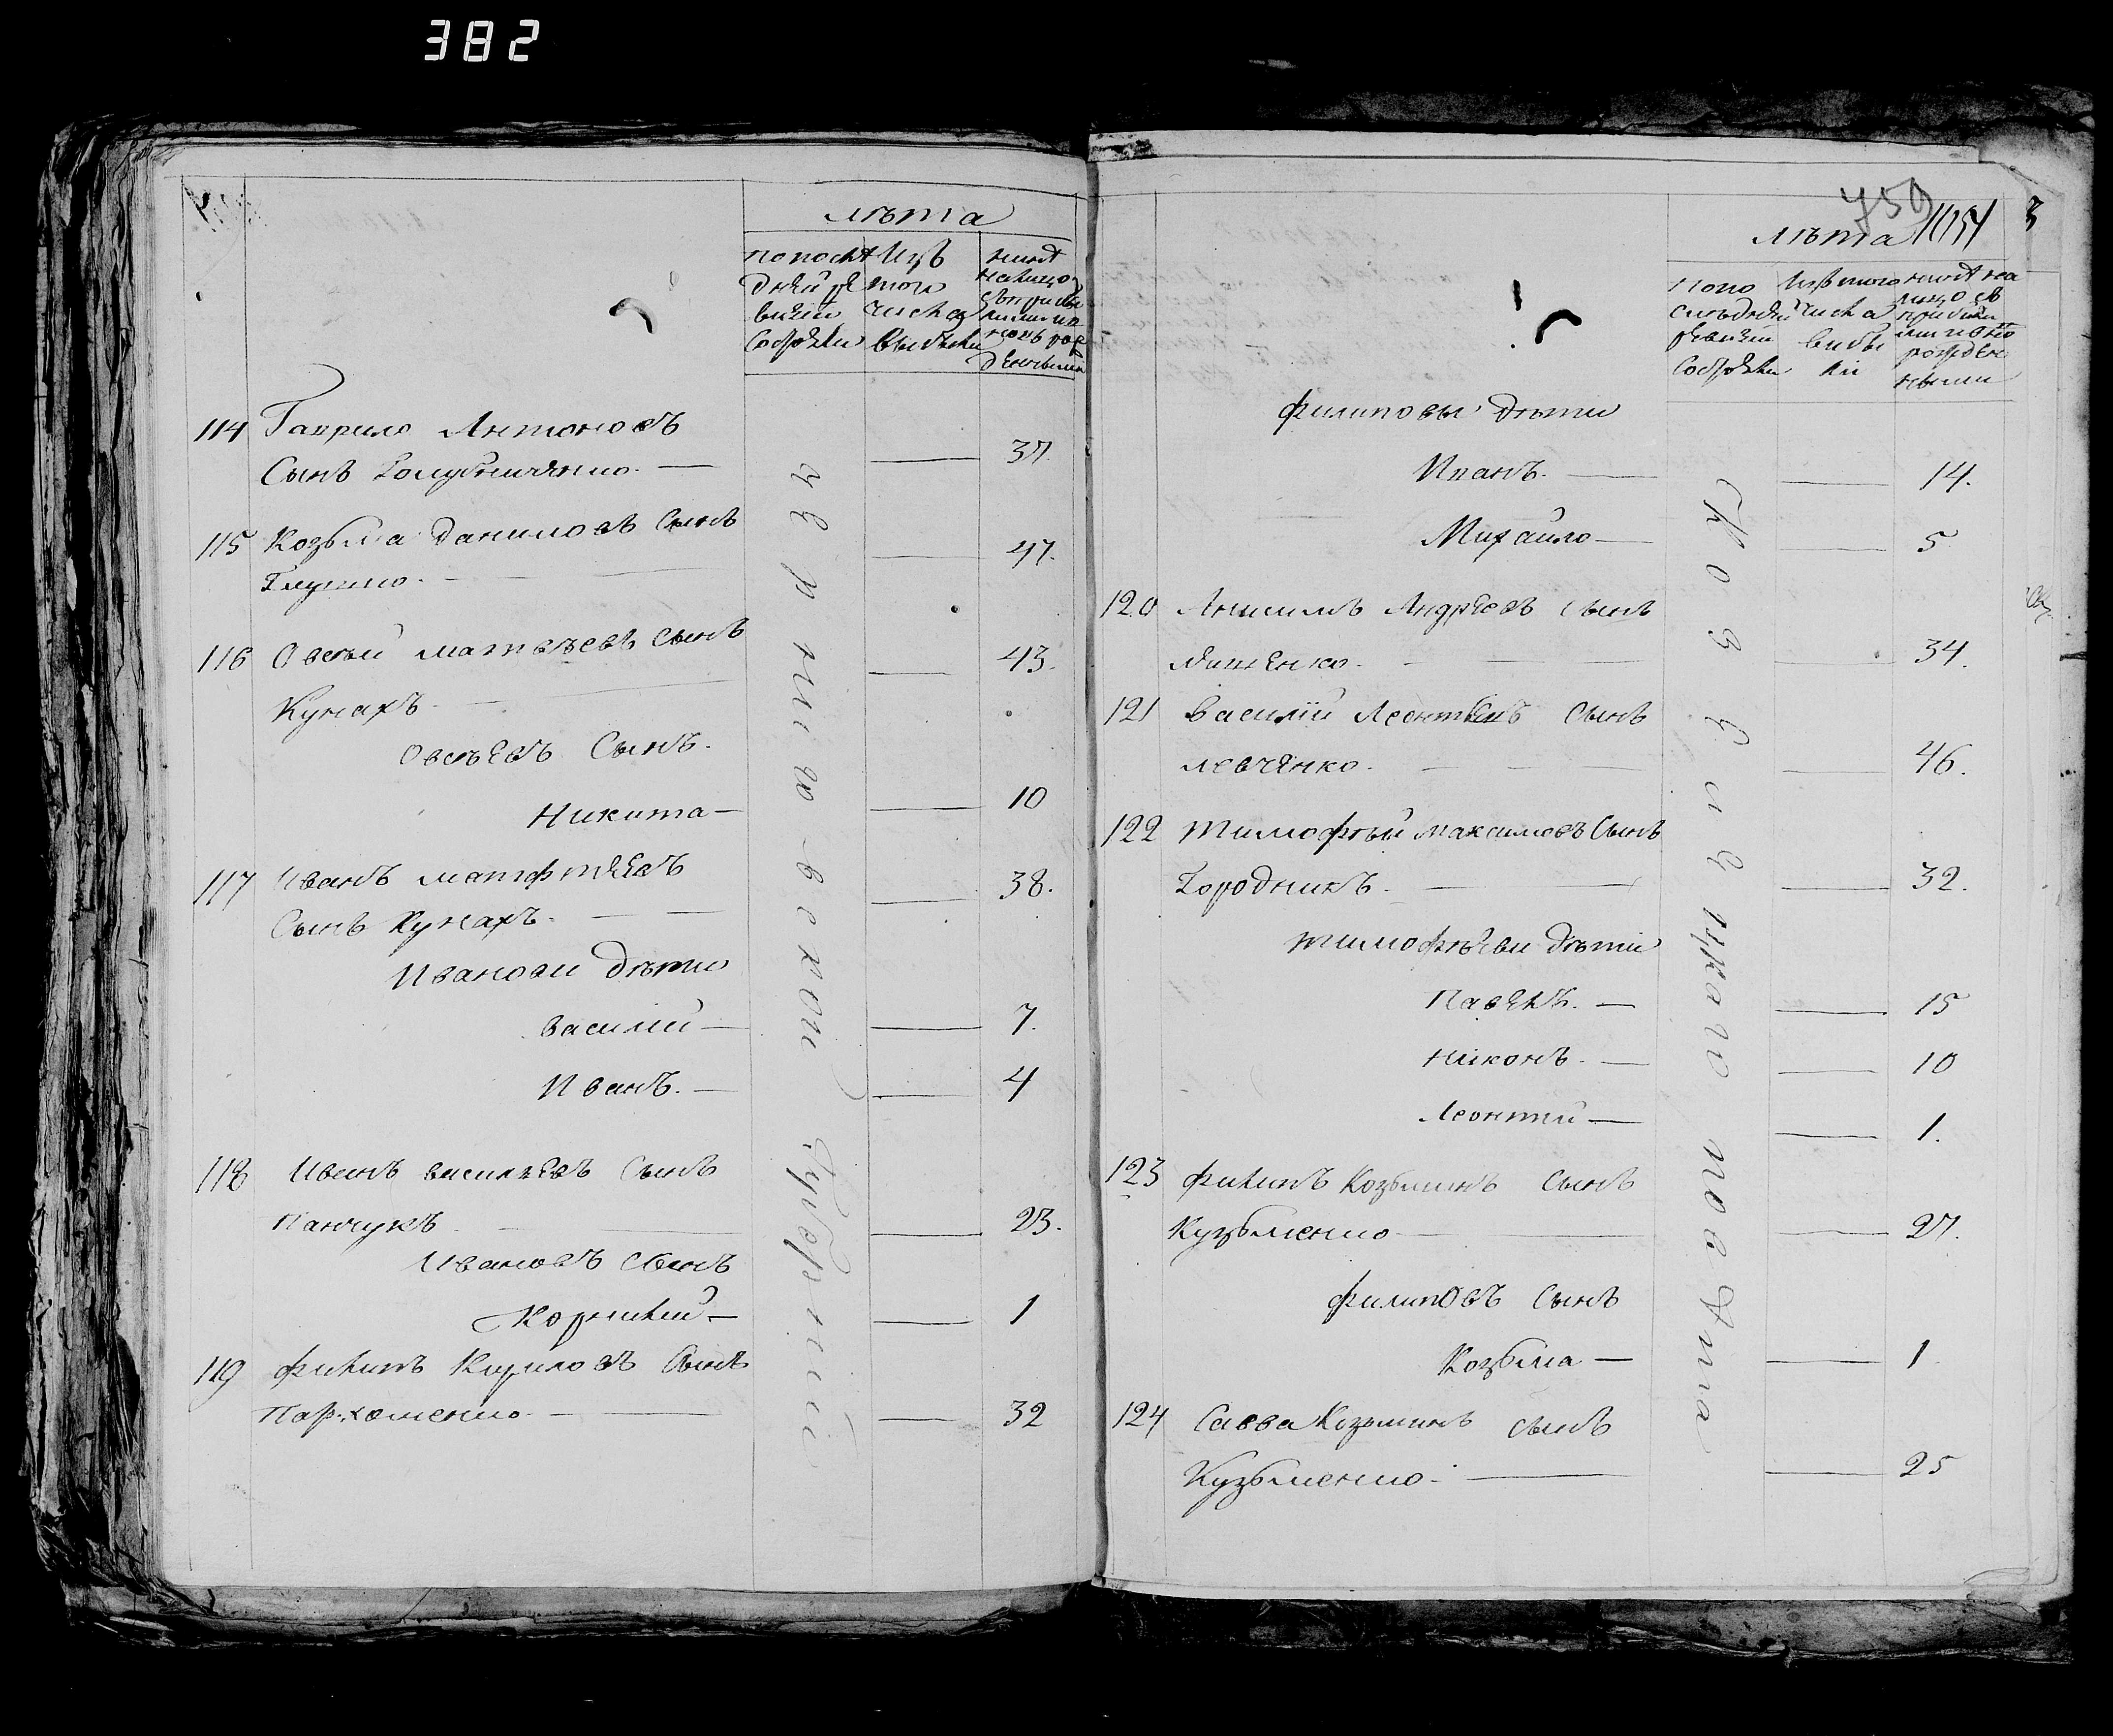 382
лѣта
по послѣ
дней ре
визіи
Состояли
Изъ
того
числа
выбыли
нынѣ
114 Гаврило Антоновъ
Сынъ Голубниченко
37.
115 Козьма Даниловъ Сынъ
Глушко
47.
116 Овсѣй Матвѣевъ Сынъ
43.
Кунахъ
Овсѣевъ Сынъ
Никита
10
117 Иванъ Матфѣевъ
38.
Сынъ Кунахъ
Ивановы дѣти
Василій
7.
Иванъ
4
118 Иванъ Васильевъ Сынъ
Панчукъ
23.
Ивановъ Сынъ
Корнилій
1
119 Филипъ Кириловъ Сынъ
Пархоменко
32
Черниговской Губерніи
759 1054 3
лѣта
по по
слѣдней
ревизіи
Состояли
Изъ того
числа
выбы
ли
нынѣ на
лицо съ
рожден
ными
Филиповы дѣти
Иванъ
14.
Михайло
5
120 Анисимъ Андреевъ Сынъ
34.
121 Василій Леонтьевъ Сынъ
Левченко
46.
122 Тимофѣй Максимовъ Сынъ
Городникъ
32.
Тимофѣеви дѣти
Павелъ
15
Никонъ
10
Леонтий
1.
123 Филипъ Козьминъ Сынъ
Кузьменко
27.
Филиповъ Сынъ
Козьма
1
124 Савва Козьминъ Сынъ
Кузьменко
25
Козелицкаго повѣта